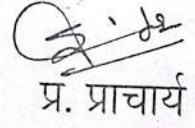 प्र. प्राचार्य